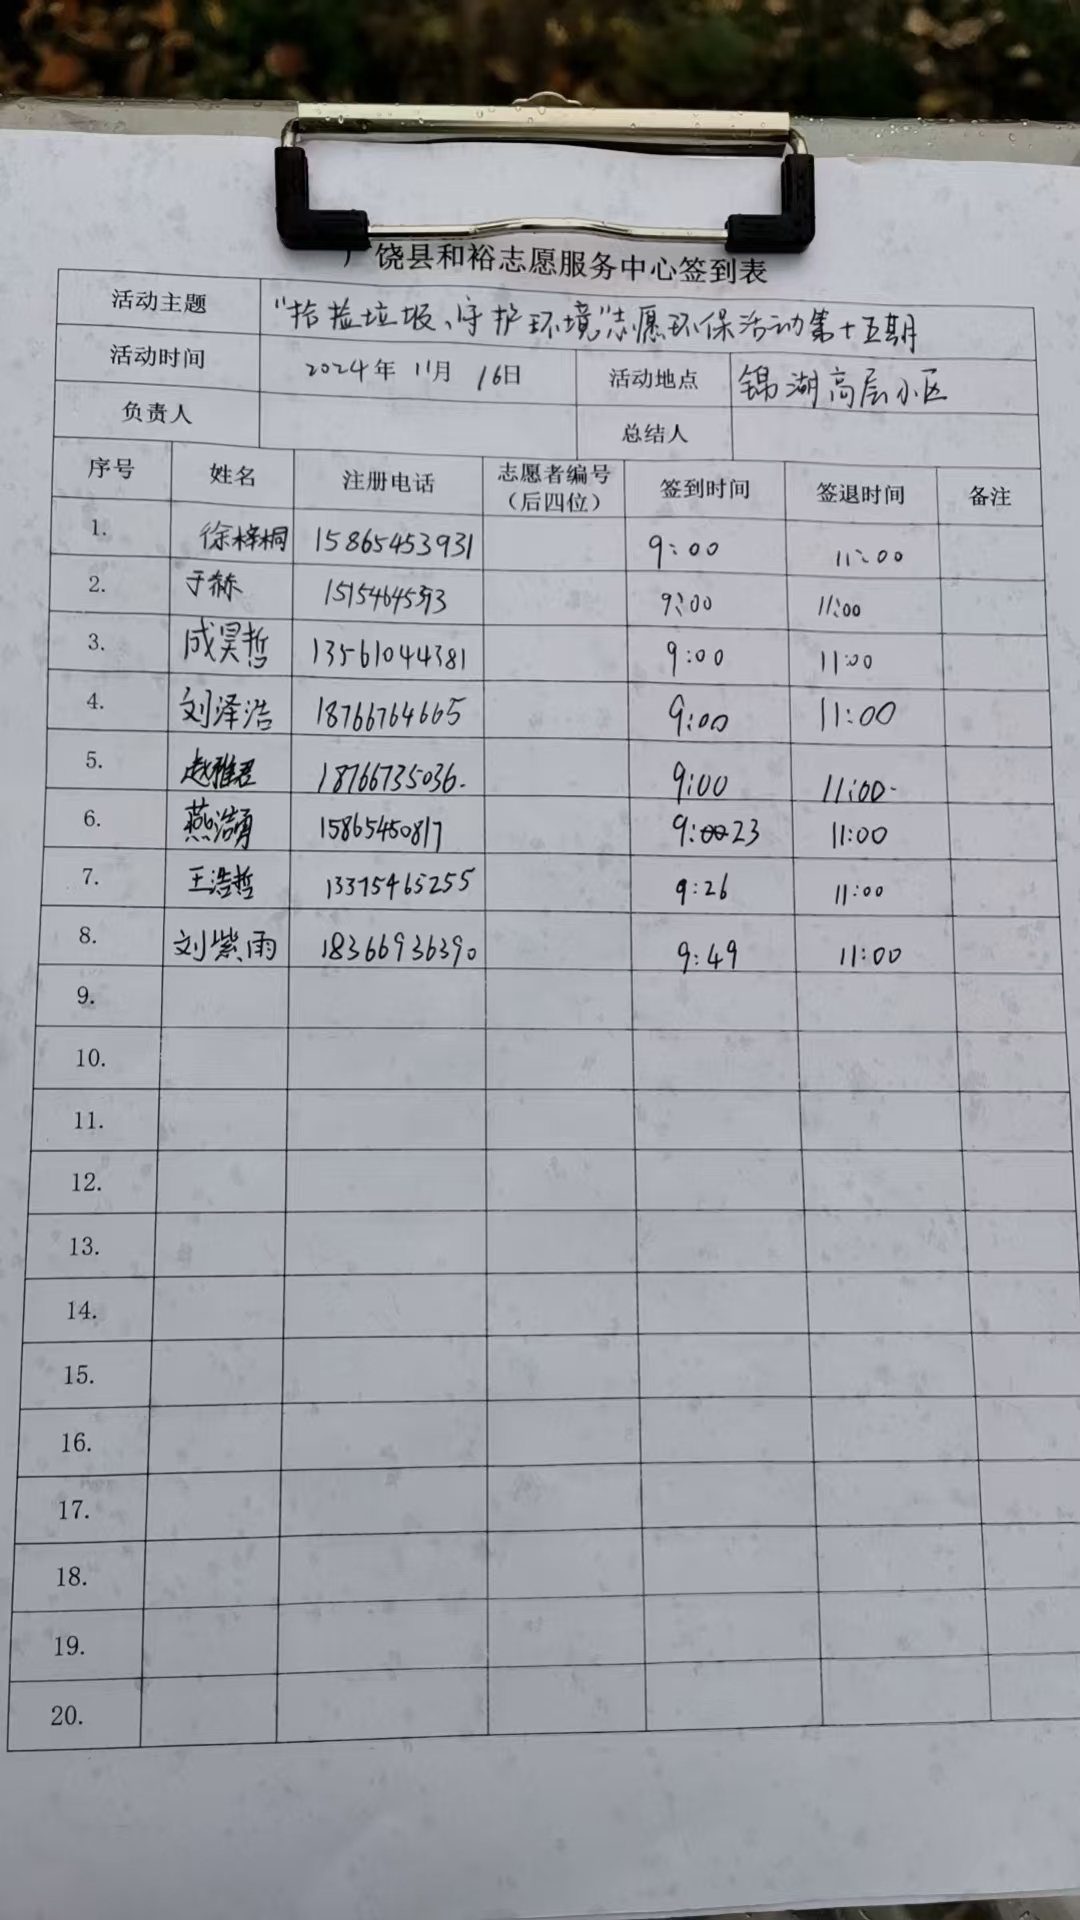 广饶县和裕志愿服务中心签到表
活动主题 “捡捡垃圾、守护环境”志愿环保活动第十五期
活动时间 2024年 11月 16日 活动地点 锦湖高层小区
负责人 总结人
序号 姓名 注册电话 志愿者编号（后四位） 签到时间 签退时间 备注
1. 徐梓桐 15865453931 9:00 11:00
2. 于赫 9:00 11:00
3. 成昊哲 13561044381 9:00 11:00
4. 刘泽浩 18766764665 9:00 11:00
5. 赵雅君 18766735036. 9:00 11:00.
6. 燕浩勇 15865450817 9:23 11:00
7. 王浩哲 13375465255 9:26 11:00
8. 刘紫雨 18366936390 9:49 11:00
9.
10.
11.
12.
13.
14.
15.
16.
17.
18.
19.
20.